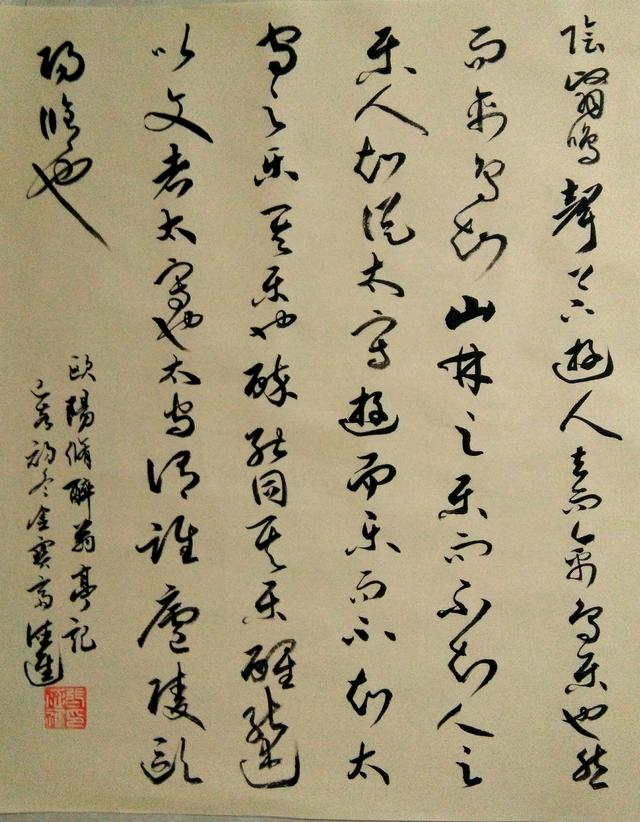 陰翳鳴聲上下遊人去而禽鳥樂也然
而禽鳥知山林之樂而不知人之
樂人知從太守遊而樂而不知太
守之樂其樂也醉能同其樂醒能述
以文者太守也太守謂誰廬陵歐
陽脩也
歐陽脩醉翁亭記
己亥初冬